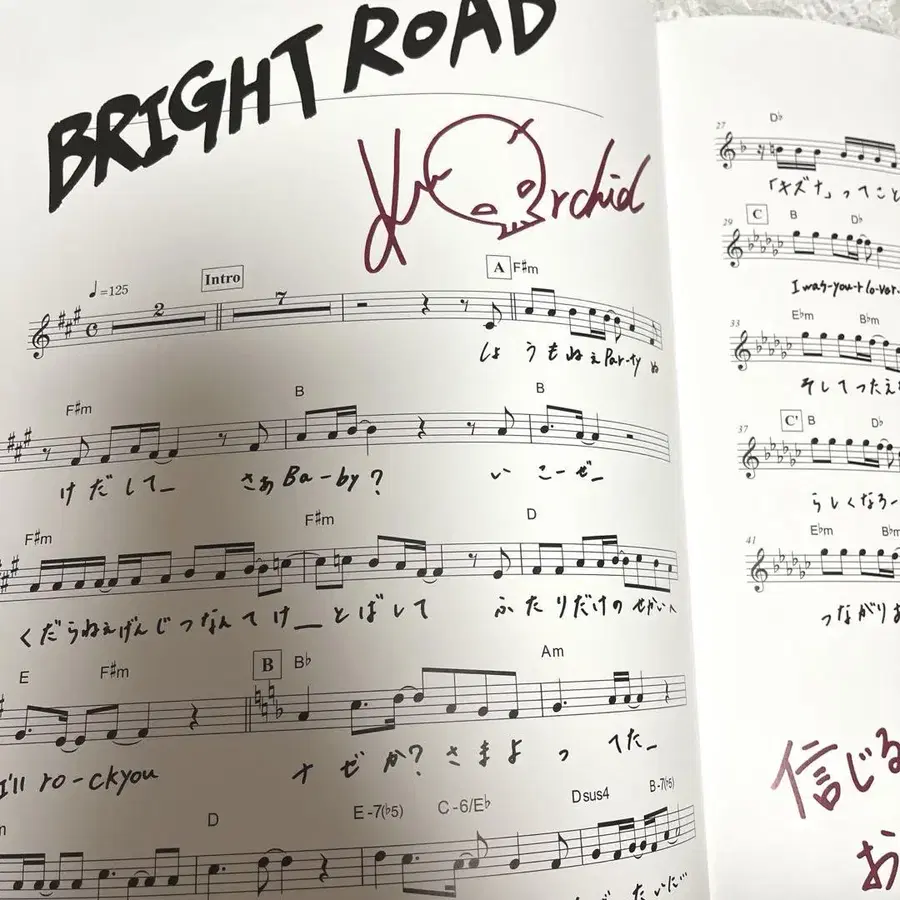 BRIGHT ROAD
Orchid
♩=125
Intro
A F#m
2 7
しょうもねぇParty ぬ
F#m B B
けだして_ さぁBa-by? い こーぜ_
F#m F#m D
くだらねぇげんじつなんてけ_とばして ふたりだけのせかいへ
E F#m B B♭ Am
I'll ro-ckyou ナゼか?さまよ って た_
D E-7(♭5) C-6/E♭ Dsus4 B-7(♭5)
27 D♭
「キズナ」ってこと
29 C B D♭
I was-you-r lo-ver.
33 E♭m B♭m
そしてつたえ
37 C' B D♭
らしくなろー
41 E♭m
つながり
信じる
お